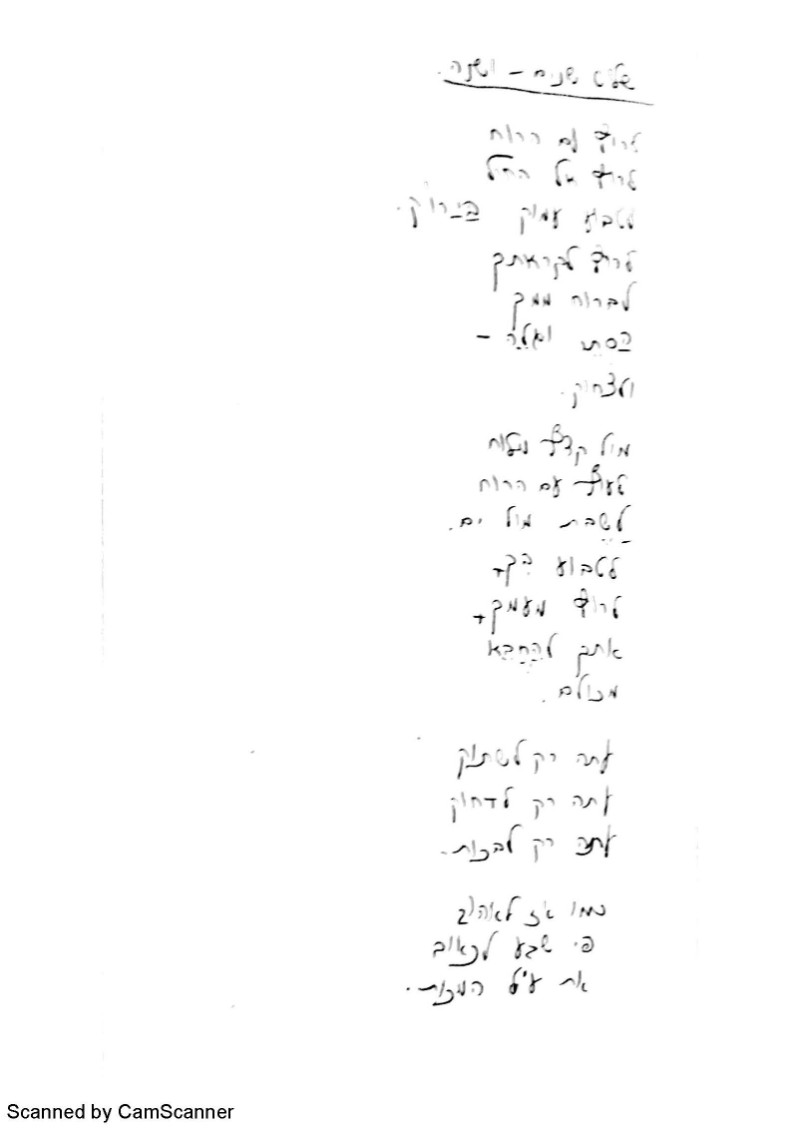 שלוש שנים – ושנה.
לרוץ עם הרוח
לרוץ אל החול
לטבוע עמוק בירוק.
לרוץ לקראתך
לברוח ממך
–
ולצחוק.
מול קדף גלוח
לעוף עם הרוח
לשבת מול ים.
לטבוע בך +
לרוץ מעמך +
אתך להחבא
מכולם.
עתה רק לשתוק
עתה רק לדחוק
עתה רק לבכות.
כמו אז לאהוב
פי שבע לכאוב
את עול המכות.
Scanned by CamScanner